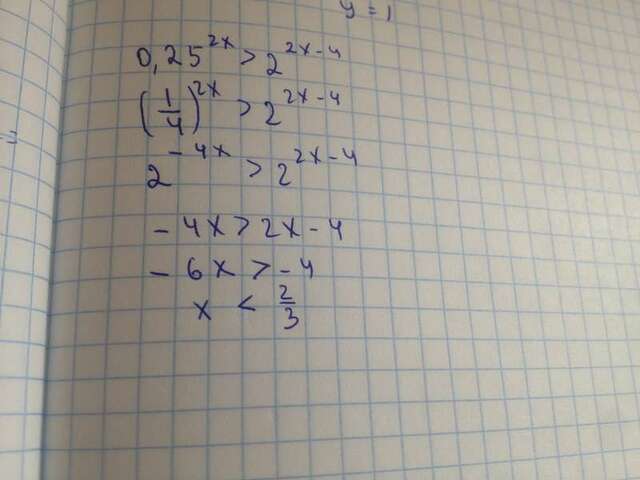 y = 1
0,25^{2x} > 2^{2x-4}
(\frac{1}{4})^{2x} > 2^{2x-4}
2^{-4x} > 2^{2x-4}
-4x > 2x-4
-6x > -4
x < \frac{2}{3}